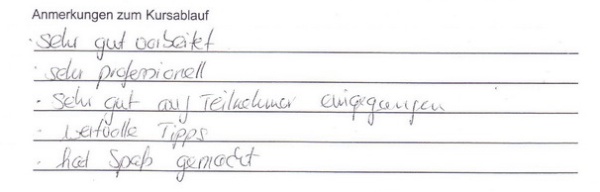 Anmerkungen zum Kursablauf
· sehr gut vorbereitet
· sehr professionell
· sehr gut auf Teilnehmer eingegangen
· wertvolle Tipps
· hat Spaß gemacht